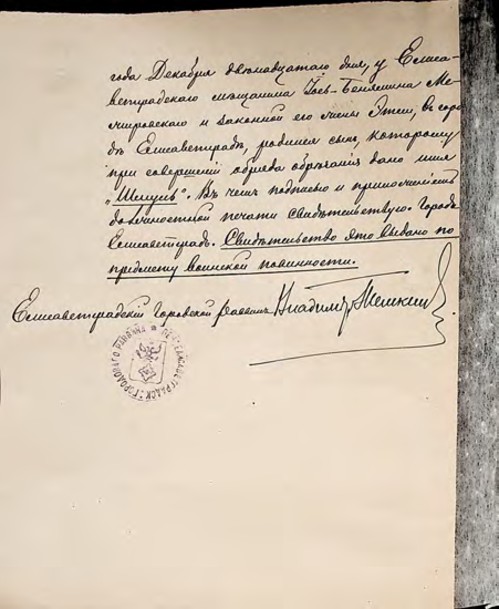 года Декабря двѣнадцатаго дня, у Елиса-
ветградскаго мѣщанина Іось-Беньямина Ме-
жировскаго и законной его жены Эти, въ горо
дѣ Елисаветградѣ, родился сынъ, которому
при совершеніи обряда обрѣзанія дано имя
„Шмуль“. Въ чемъ подписью и приложеніемъ
должностной печати свидѣтельствую. Городъ
Елисаветградъ. Свидѣтельство это выдано по
предмету воинской повинности.
Елисаветградскій Городской Раввинъ Владиміръ
ГОРОДОВОГО РАВВИНА